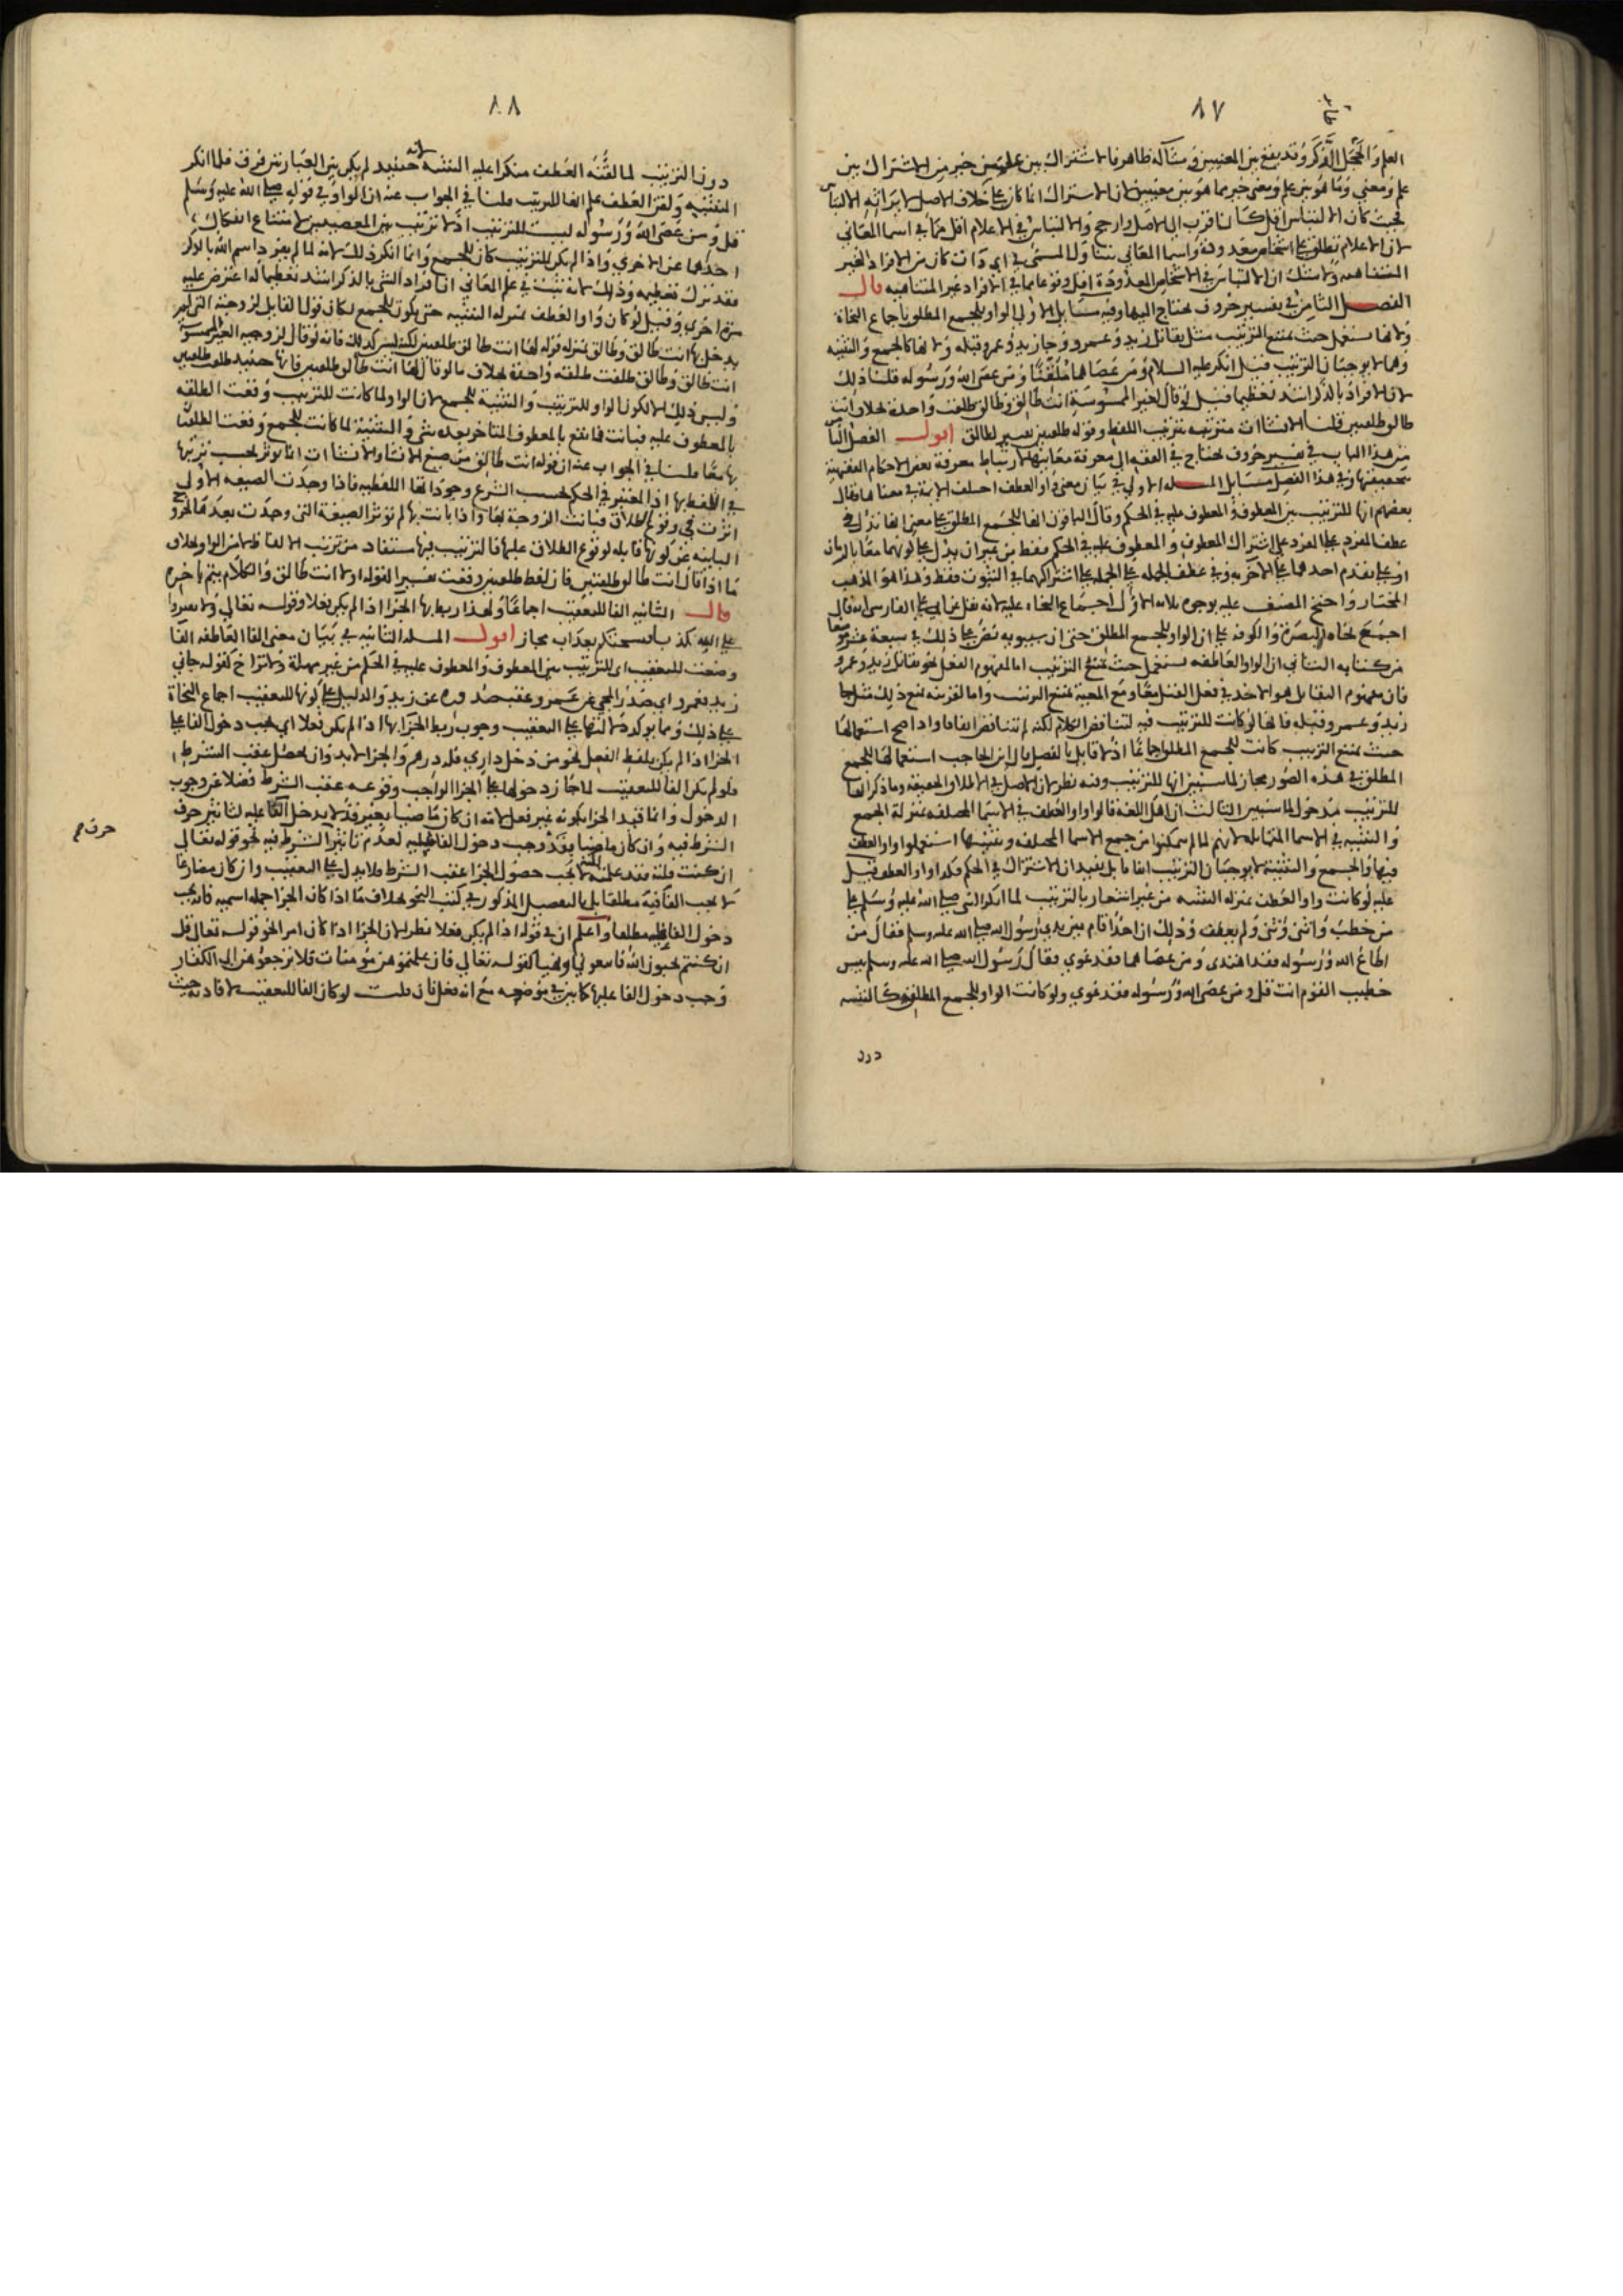 ٨٧
العلم والمجمل الفكر وقد يقع بين المعنيين ومثاله ظاهر فالاشتراك بين علمين خير من الاشتراك بين
علم ومعنى وما هو بين علم ومعنى خير مما هو بين معنيين لان الاشتراك انما كان على خلاف الاصل الالتباس
فحيث كان الالتباس اقل كان اقرب الى الاصل وارجح والالتباس في الاعلام اقل مما في اسما المعاني
لان الاعلام تطلق على اشخاص معدودة واسما المعاني تتناول المسمى في اي ذات كان من الافراد الغير
المتناهيه ولا شك ان الالتباس في الاشخاص المعدودة اقل وقوعا مما في افراد غير المتناهيه قال
الفصل الثامن في تفسير حروف يحتاج اليها وفيه مسايل الاولى الواو للجمع المطلق باجماع النحاة
ولانها تستعمل حيث يمتنع الترتيب مثل تقاتل زيد وعمرو وجا زيد وعمرو قبله ولانها كالجمع والتثنيه
وهما لا يوجبان الترتيب قيل انكر عليه السلام ومن عصاهما ملقنا ومن عصى الله ورسوله قلنا ذلك
لان الافراد بالذكر اشد تعظيما قيل لو قال لغير الممسوسة انت طالق وطالق طلقت واحدة بخلاف انت
طالق طلقتين قلنا الانشاات مترتبه بترتيب اللفظ وقوله طلقتين تفسير لطالق اقول الفصل الثامن
من هذا الباب في تفسير حروف يحتاج في الفقه الى معرفة معانيها لارتباط معرفة بعض الاحكام الفقهية
بتحقيقها وفي هذا الفصل مسايل المسله الاولى في بيان معنى واو العطف اختلف الايمة في معناها فقال
بعضهم انها للترتيب بين المعطوف والمعطوف عليه في الحكم وقال الباقون انها للجمع المطلق على معنى انها تدل في
عطف المفرد على المفرد على اشتراك المعطوف والمعطوف عليه في الحكم فقط من غير ان يدل على كونهما معا بالزمان
او على تقدم احدهما على الاخر به وفي عطف الجملة على الجملة على اشتراكهما في الثبوت فقط وهذا هو المذهب
المختار واحتج المصنف عليه بوجوه ثلاثه الاول اجماع النحاة عليه لانه نقل عن ابي علي الفارسي انه قال
اجمع نحاة البصرة والكوفة على ان الواو للجمع المطلق حتى ان سيبويه نص على ذلك في سبعة عشر موضعا
من كتابه الثاني ان الواو العاطفه تستعمل حيث يمتنع الترتيب اما لمفهوم الفعل نحو تقاتل زيد وعمرو
فان مفهوم التقاتل هو الاخذ في فعل القتل معا ومع المعية يمتنع الترتيب واما لقرينه تمنع ذلك مثل جا
زيد وعمرو قبله فانها لو كانت للترتيب فيه لتناقض الكلام لكنه لم يتناقض اتفاقا واذا صح استعمالها
حيث يمتنع الترتيب كانت للجمع المطلق اجماعا اذ لا قايل بالفصل قال ابن الحاجب استعمالها للجمع
المطلق في هذه الصور مجاز لما سنبين انها للترتيب وفيه نظر لان الاصل في الاطلاق الحقيقة وما ذكر انها
للترتيب مدخول لما سنبين الثالث ان اهل اللغة قالوا واو العطف في الاسما المختلفه بمنزلة الجمع
والتثنيه في الاسما المتماثله لانهم لما لم يتمكنوا من جمع الاسما المختلفه وتثنيتها استعملوا واو العطف
فيها والجمع والتثنية لا يوجبان الترتيب اتفاقا بل يفيدان الاشتراك في الحكم فكذا واو العطف قيل
عليه لو كانت واو العطف بمنزله التثنيه من غير اشعار بالترتيب لما انكر النبي صلى الله عليه وسلم على
من خطب واثنى وثنى ولم يعطف وذلك ان احدا قام بين يدي رسول الله صلى الله عليه وسلم فقال من
اطاع الله ورسوله فقد اهتدى ومن عصاهما فقد غوي فقال رسول الله صلى الله عليه وسلم بيس
خطيب القوم انت قل ومن عصى الله ورسوله فقد غوي ولو كانت الواو للجمع المطلق كالتثنيه
دون
٨٨
دون الترتيب لما لقنه العطف منكرا عليه التثنيه لانه حينيذ لم يكن بين العبارتين فرق فلما انكر
التثنيه ولقن العطف علم انها للترتيب قلنا في الجواب عنه ان الواو في قوله صلى الله عليه وسلم
قل ومن عصى الله ورسوله ليست للترتيب اذ لا ترتيب بين المعصيتين لامتناع انفكاك
احداهما عن الاخرى واذا لم يكن للترتيب كان للجمع وانما انكر ذلك لانه لما لم يفرد اسم الله بالذكر
فقد ترك تعظيمه وذلك لانه تثبت في علم المعاني ان افراد الشي بالذكر اشد تعظيما له اعترض عليه
مرة اخرى وقيل لو كان واو العطف بمنزله التثنيه حتى يكون للجمع لكان قول القايل لزوجته التي لم
يدخل بها انت طالق وطالق بمنزله قوله لها انت طالق طلقتين لكنه ليس كذلك فانه لو قال لزوجته الغير الممسوسة
انت طالق وطالق طلقت طلقه واحدة بخلاف ما لو قال لها انت طالق طلقتين فانها حينيذ طلقت طلقتين
وليس ذلك الا لكون الواو للترتيب والتثنية للجمع لان الواو لما كانت للترتيب وقعت الطلقه
بالمعطوف عليه فبانت فما تقع بالمعطوف المتاخر بعده شي والتثنية لما كانت للجمع وقعت الطلقتان
بها معا قلنا في الجواب عنه ان قوله انت طالق من صيغ الانشا والانشاات انما توثر بحسب ترتبها
في اللفظ بها اذ المعتبر في الحكم بحسب الشرع وجودها اللفظيه فاذا وجدت الصيغه الاولى
اثرت في وقوع الطلاق فبانت الزوجة بها واذا بانت بها لم توثر الصيغة التي وجدت بعدها لخروج
الباينه عن كونها قابله لوقوع الطلاق عليها فالترتيب فيها مستفاد من ترتيب الالفاظ لا من الواو بخلاف
ما اذا قال انت طالق طلقتين فان لفظ طلقتين وقعت تفسيرا لقوله اولا انت طالق والكلام يتم باخره
قال الثانيه الفا للتعقيب اجماعا ولهذا ربط بها الجزا اذا لم يكن فعلا وقوله تعالى ولا تفتروا
على الله كذبا فيسحتكم بعذاب مجاز اقول المسله الثانيه في بيان معنى الفا الفا العاطفه
وضعت للتعقيب اي للترتيب بين المعطوف والمعطوف عليه في الحكم من غير مهلة ولا تراخ كقوله جاني
زيد فعمرو اي صدر المجي عن عمرو عقيب صدوره عن زيد والدليل على كونها للتعقيب اجماع النحاة
على ذلك ومما يوكد دلالتها على التعقيب وجوب ربط الجزا بها اذا لم يكن فعلا اي يجب دخول الفا على
الجزا اذا لم يكن بلفظ الفعل نحو من دخل داري فله درهم والجزا لابد وان يحصل عقيب الشرط
فلو لم يكن الفا للتعقيب لما جاز دخولها على الجزا الواجب وقوعه عقيب الشرط فضلا عن وجوب
الدخول وانما قيد الجزا بكونه غير فعل لانه ان كان ماضيا بغير قد لا يدخل الفا عليه لتاثير حرف
الشرط فيه وان كان ماضيا بقد وجب دخول الفا عليه لعدم تاثير الشرط فيه نحو قوله تعالى
ان كنت قلته فقد علمته لانه يجب حصول الجزا عقيب الشرط فلا يدل على التعقيب وان كان مضارعا
لا يجب الفا فيه مطلقا بل بالتفصيل المذكور في كتب النحو بخلاف ما اذا كان الجزا جمله اسميه فانه يجب
دخول الفا عليه مطلقا واعلم ان في قوله اذا لم يكن فعلا نظر لان الجزا اذا كان امرا نحو قوله تعالى قل
ان كنتم تحبون الله فاتبعوني او نهيا كقوله تعالى فان علمتموهن مومنات فلا ترجعوهن الى الكفار
وجب دخول الفا عليها كما بين في موضعه مع انه فعل فان قلت لو كان الفا للتعقيب لافادته حيث
حرف